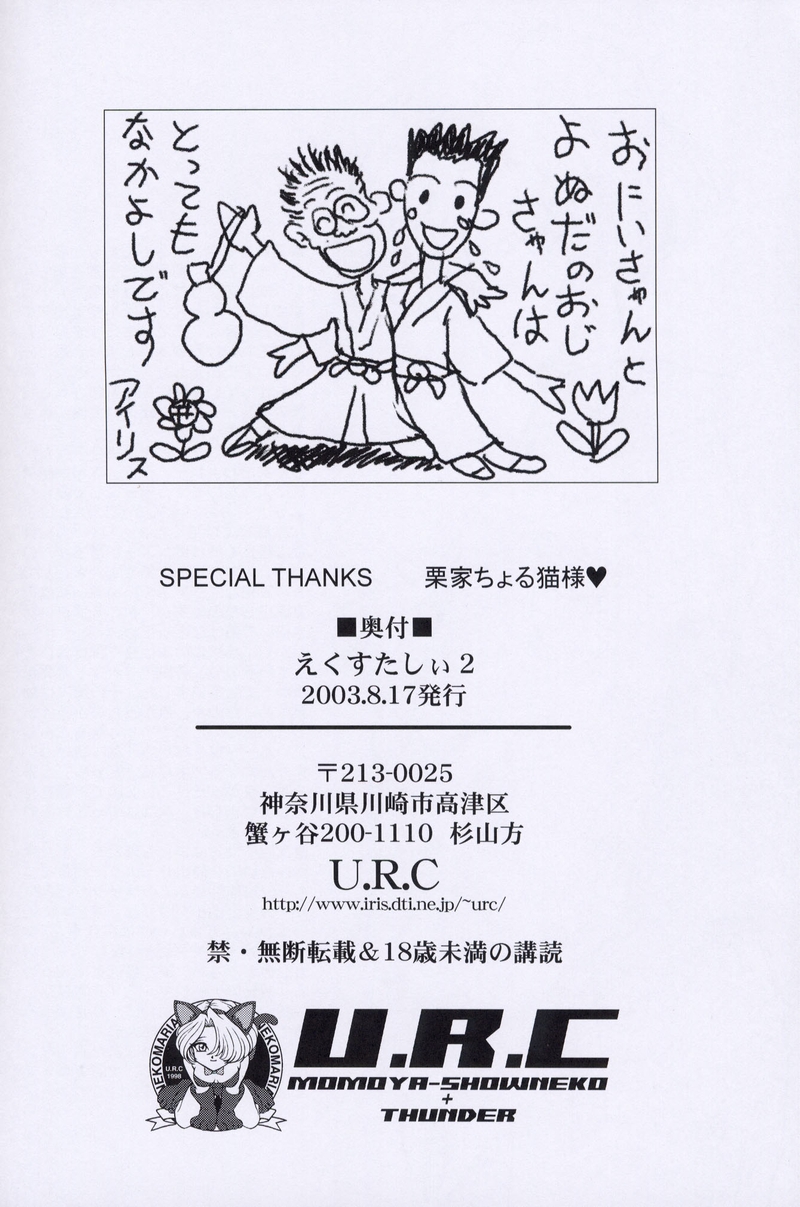 おにいさゃんと
よぬだのおじ
さゃんは
とっても
なかよしです
アイリス
SPECIAL THANKS 栗家ちょる猫様♥
■奥付■
えくすたしぃ２
2003.8.17発行
〒213-0025
神奈川県川崎市高津区
蟹ヶ谷200-1110 杉山方
U.R.C
http://www.iris.dti.ne.jp/~urc/
禁・無断転載＆18歳未満の講読
NEKOMARIA
NEKOMARIA
U.R.C
1998
U.R.C
MOMOYA-SHOWNEKO
+
THUNDER